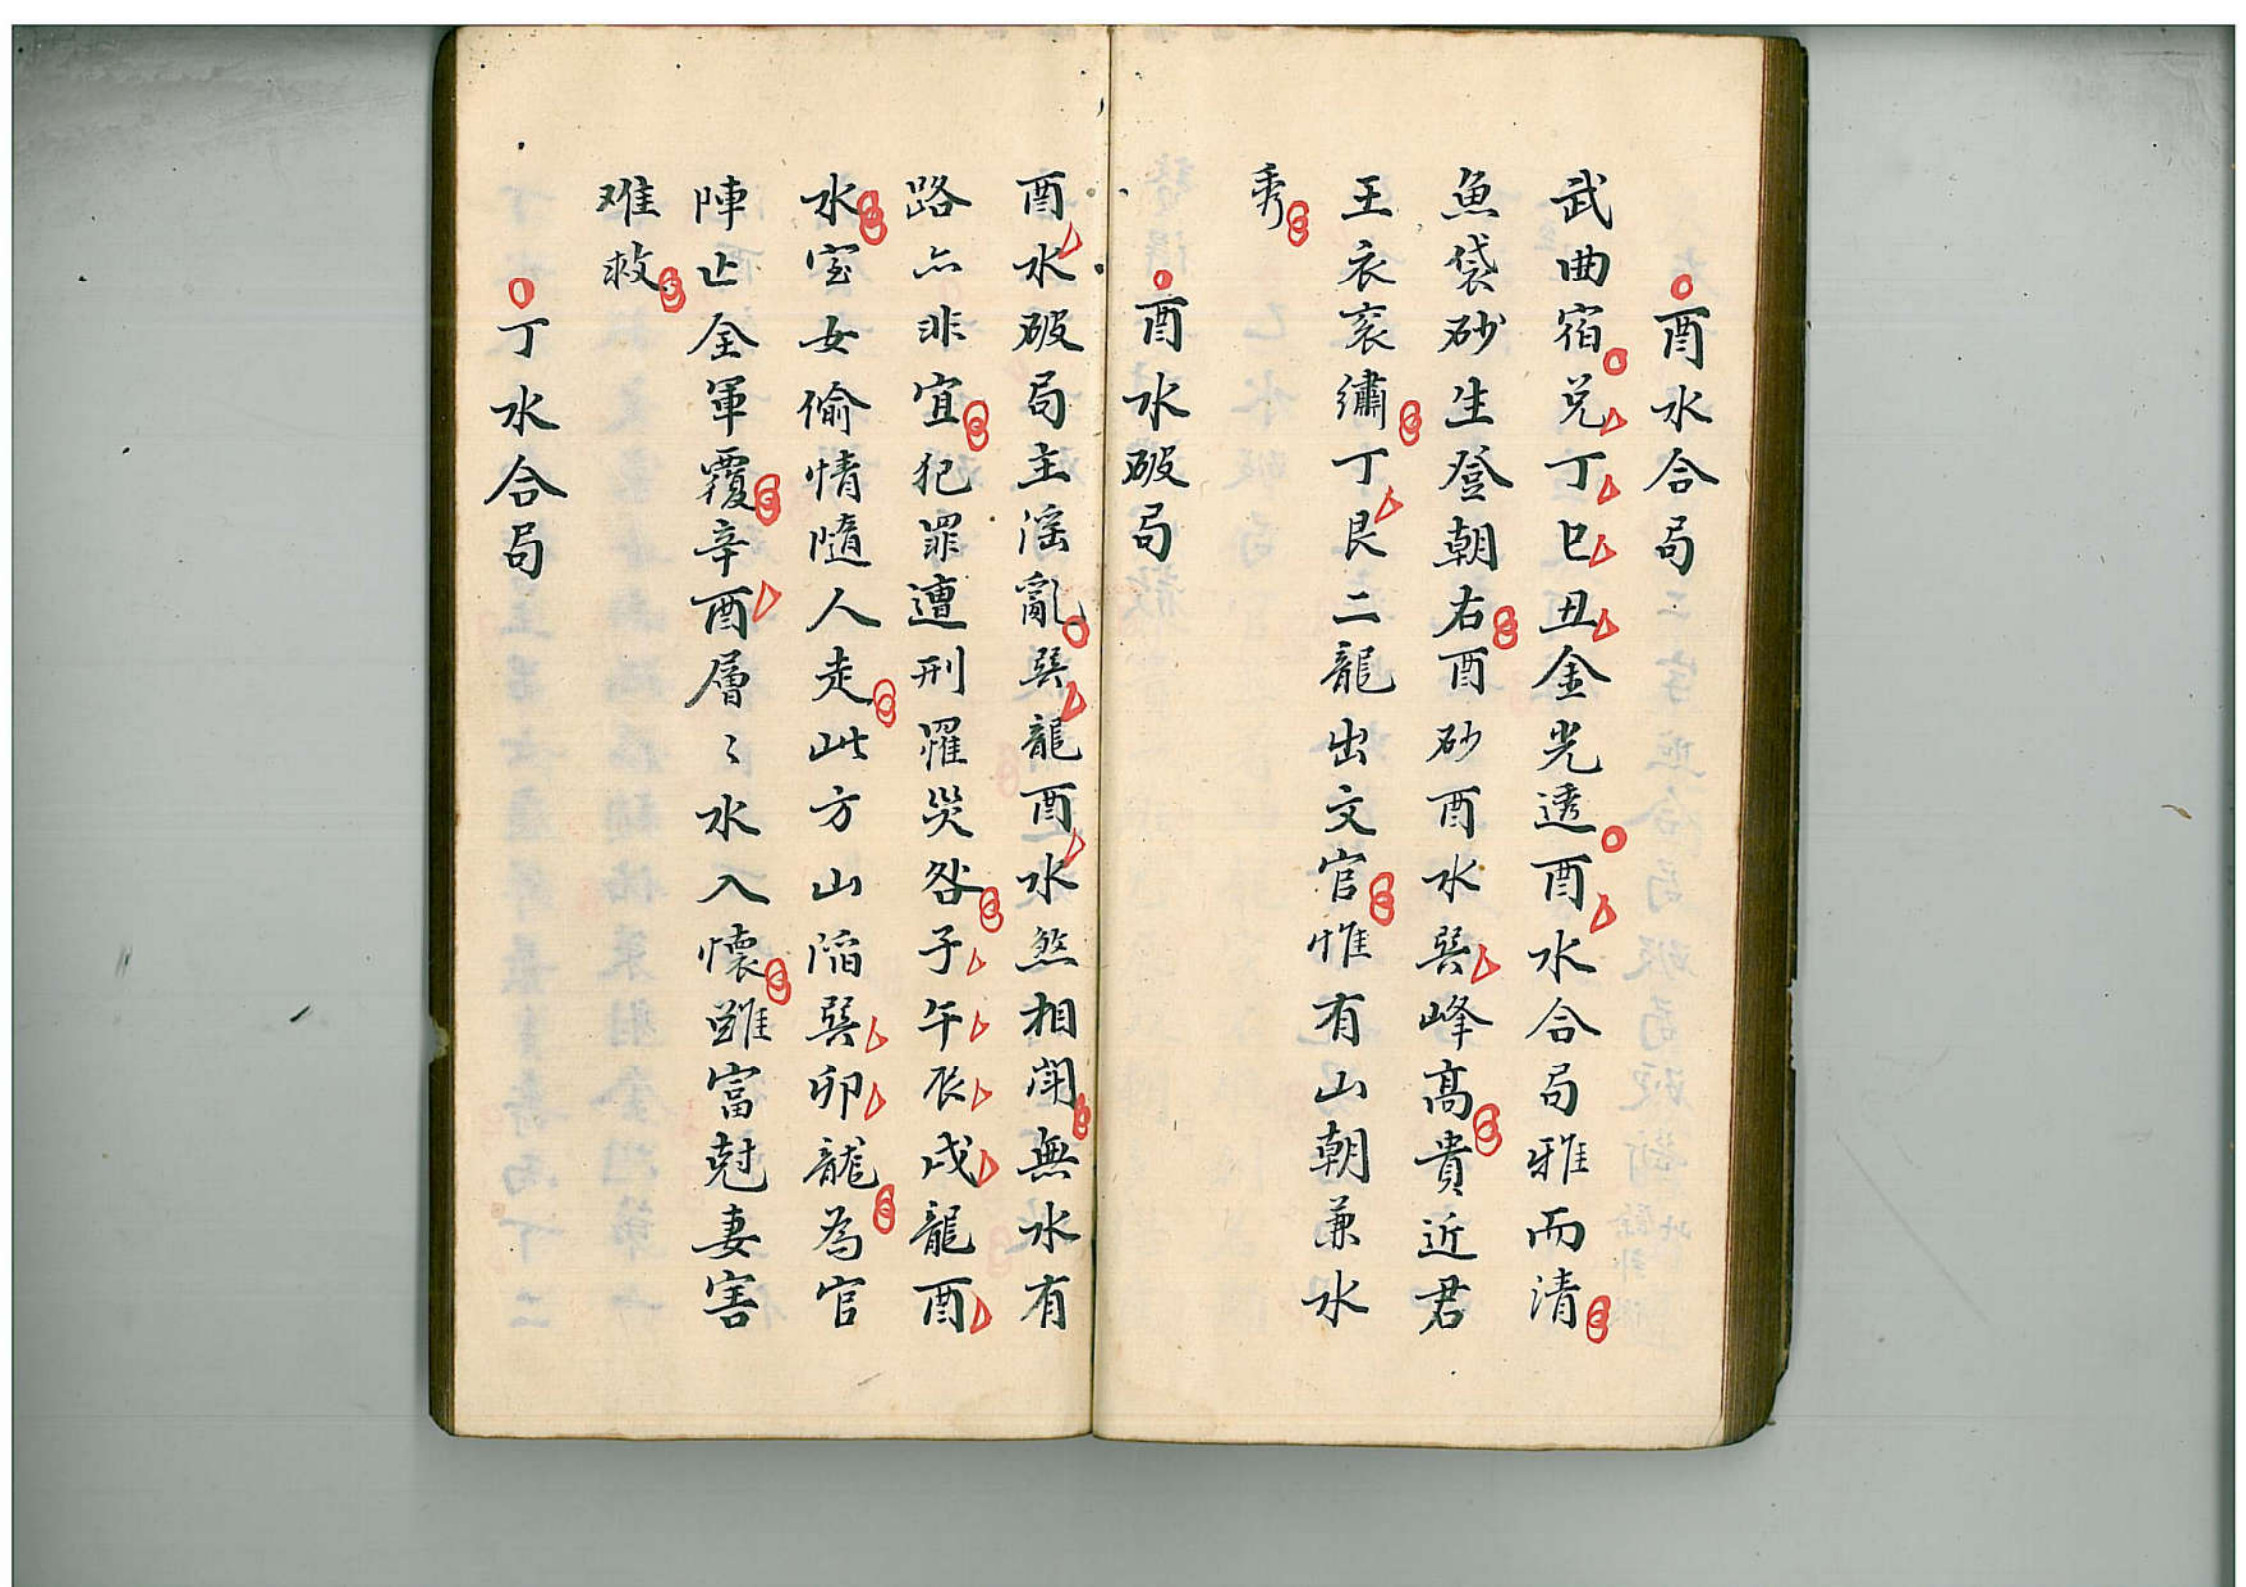 酉水合局
武曲宿兑丁巳丑金光透酉水合局雅而清
魚袋砂生登朝右酉砂酉水巽峰髙貴近君
王衣衮繡丁艮二龍出文官惟有山朝兼水
秀
酉水破局
酉水破局主淫亂巽龍酉水煞相関無水有
路亦非宜犯罪遭刑罹災咎子午辰戌龍酉
水室女偷情隨人走此方山陷巽卯龍為官
陣亡全軍覆辛酉層〻水入懷雖富尅妻害
难救
丁水合局